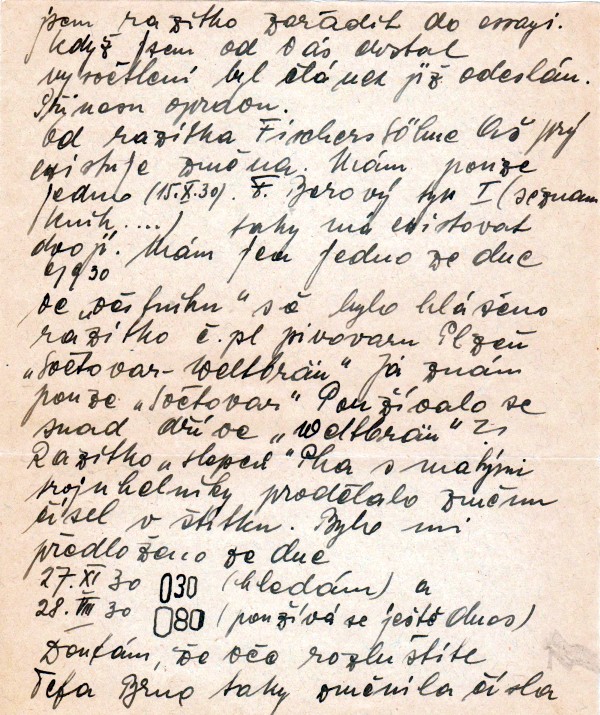 jsem razítko zařádit do esayi.
Když jsem od Vás dostal
vysvětlení byl článek již odeslán.
Přinesu opravu.
Od razítka Fischers Söhne Aš prý
existuje změna. Mám pouze
jedno (15.X.30). F. Borový typ I (seznam
knih....) taky má existovat
dvojí. Mám jen jedno ze dne
6/9 30
Ve „věstníku" sě bylo hlášeno
razítko č. pl pivovaru Plzeň
„Světovar-Weltbräu" Já znám
pouze „Světovar" Používalo se
snad dříve „Weltbräu"
Razítko „slepců" Pha s malými
trojuhelníky prodělalo změnu
čísel v štítku. Bylo mi
předloženo ze dne
27.XI 30 030 (hledám) a
28.VIII 30 080 (používá se ještě dnes)
Doufám, že věc rozluštíte
Tefa Brno taky změnila čísla